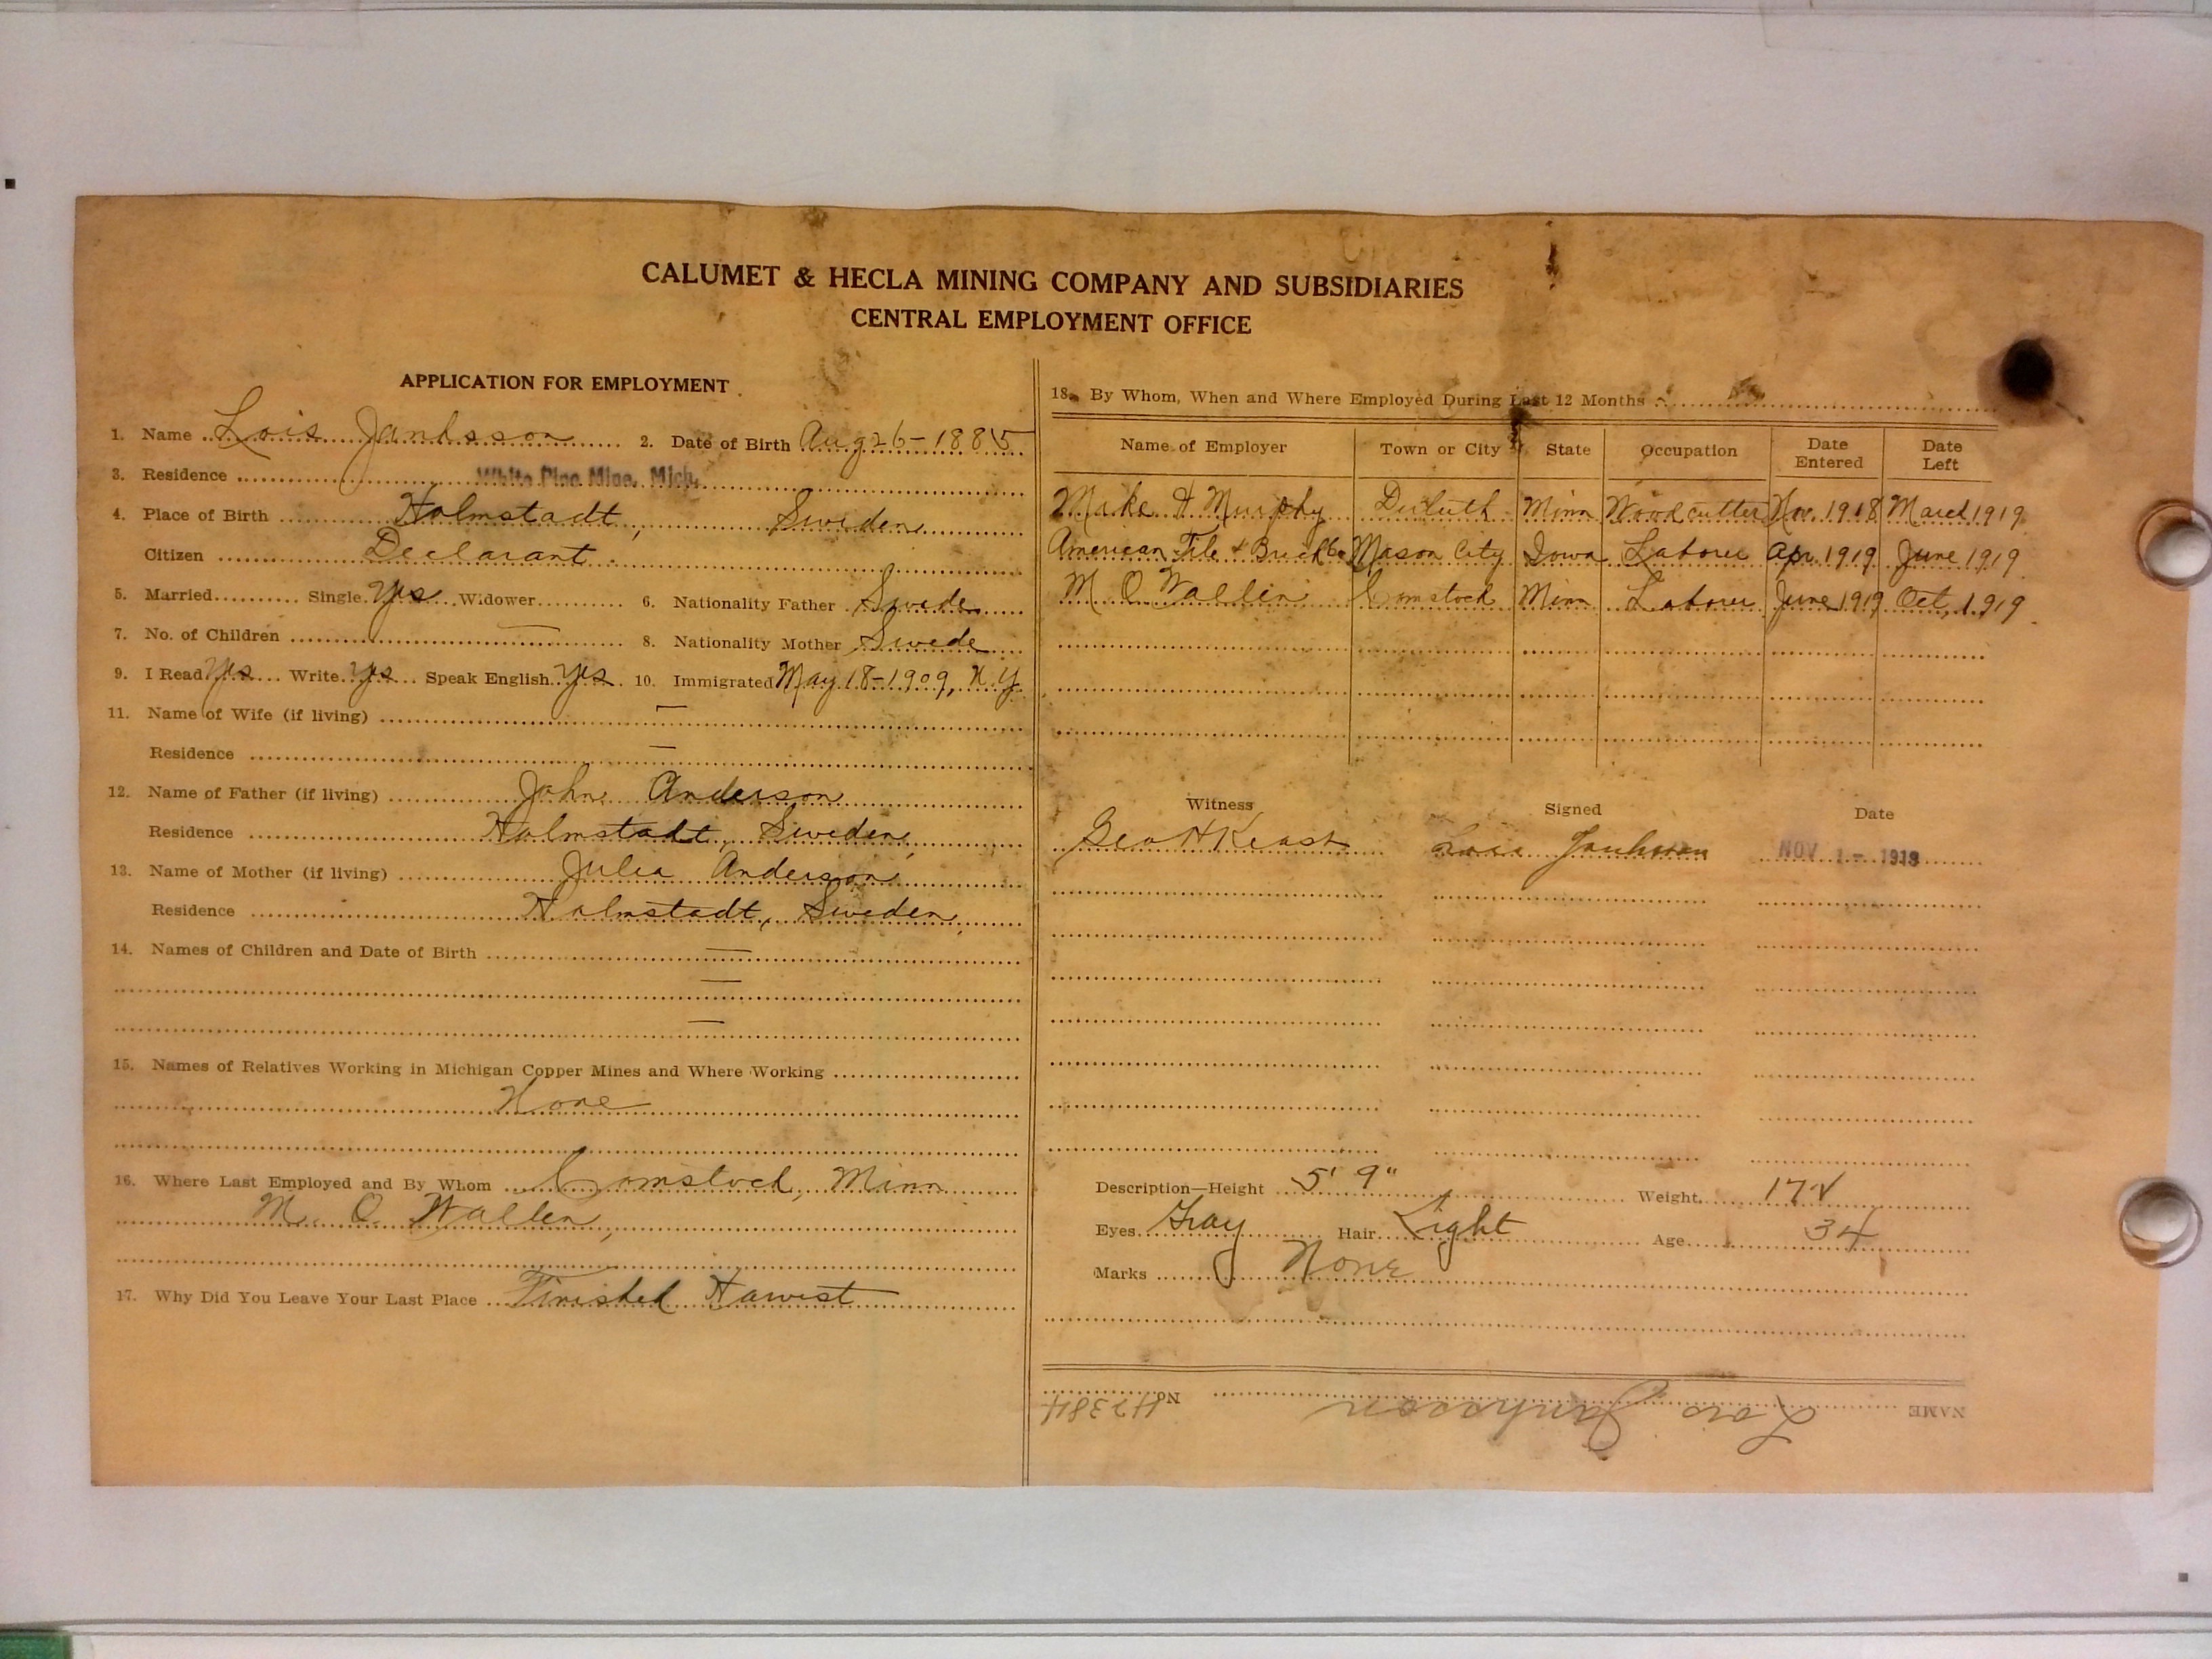 CALUMET & HECLA MINING COMPANY AND SUBSIDIARIES
CENTRAL EMPLOYMENT OFFICE
APPLICATION FOR EMPLOYMENT
1. Name Lois Janksson 2. Date of Birth Aug 26-1885
3. Residence White Pine Mine, Mich.
4. Place of Birth Holmstadt, Sweden
Citizen Declarant
5. Married Single Yes Widower 6. Nationality Father Swede
7. No. of Children — 8. Nationality Mother Swede
9. I Read Yes Write Yes Speak English Yes 10. Immigrated May 18-1909, N.Y.
11. Name of Wife (if living) —
Residence —
12. Name of Father (if living) John Anderson
Residence Holmstadt, Sweden
13. Name of Mother (if living) Julia Anderson
Residence Holmstadt, Sweden
14. Names of Children and Date of Birth —
—
—
15. Names of Relatives Working in Michigan Copper Mines and Where Working
None
16. Where Last Employed and By Whom Comstock Minn
M. O. Wallen
17. Why Did You Leave Your Last Place Finished Harvest
18. By Whom, When and Where Employed During Last 12 Months
Name of Employer Town or City State Occupation Date Entered Date Left
& Murphy Duluth Minn Woodcutter Nov. 1918 March 1919
American Tile & Brick Co Mason City Iowa Laborer Apr. 1919 June 1919
M O Wallin Comstock Minn Laborer June 1919 Oct, 1919
Witness Signed Date
Geo H Keast Lois NOV 1 - 1919
Description—Height 5' 9" Weight
Eyes Gray Hair Light Age 34
Marks None
NAME No. 42384